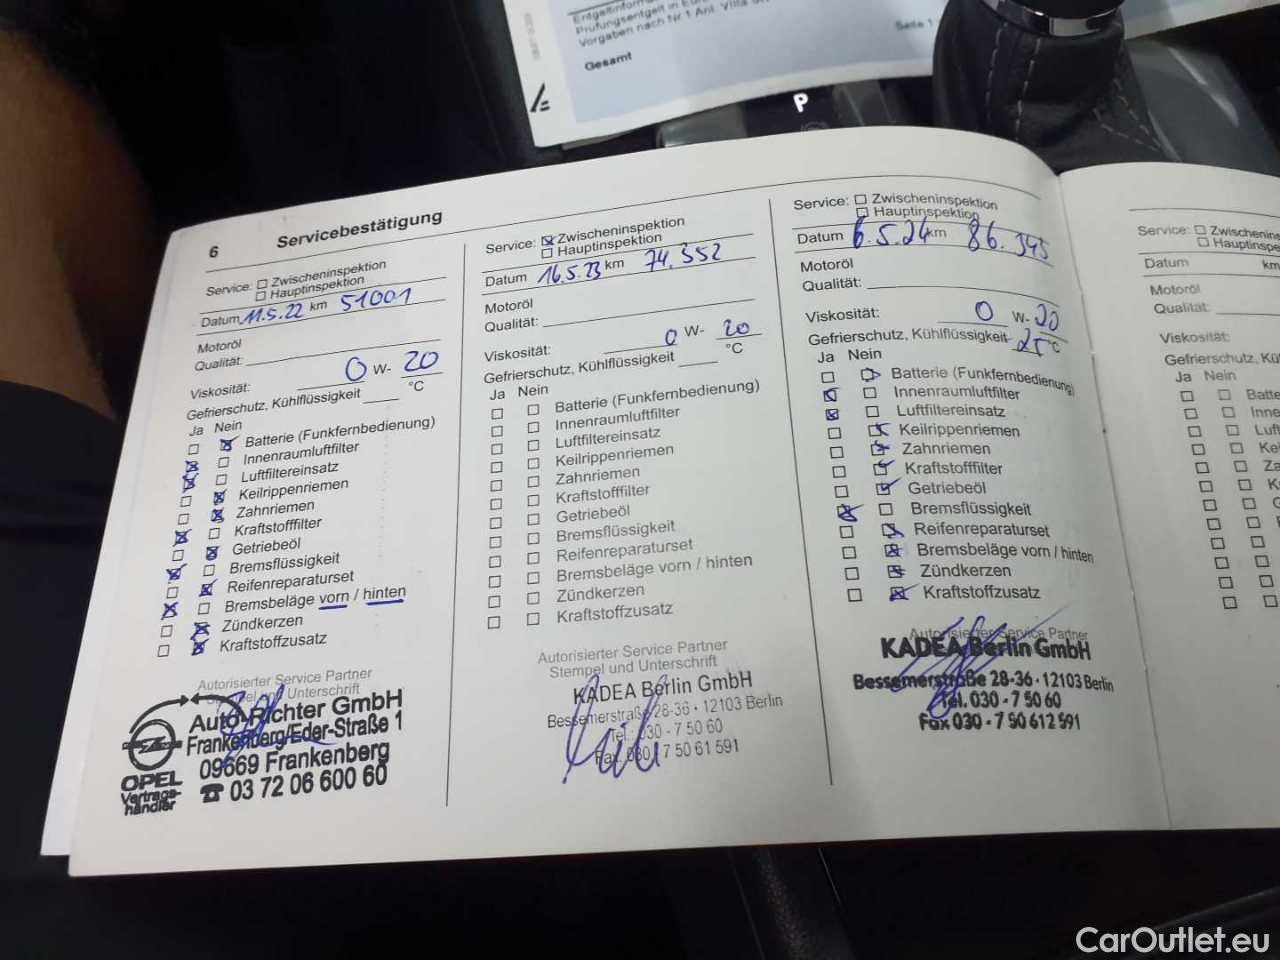 Entgeltinform
Prüfungsentgelt in Eur
Vorgaben nach Nr.1 Anl. VIIIa
Seite 1
Gesamt
P
6 Servicebestätigung
Service: ☐ Zwischeninspektion
☐ Hauptinspektion
Datum 11.5.22 km 51001
Motoröl
Qualität:
Viskosität: 0 W- 20
Gefrierschutz, Kühlflüssigkeit °C
Ja Nein
☐ ☒ Batterie (Funkfernbedienung)
☒ ☐ Innenraumluftfilter
☒ ☐ Luftfiltereinsatz
☐ ☒ Keilrippenriemen
☐ ☒ Zahnriemen
☒ ☐ Kraftstofffilter
☐ ☒ Getriebeöl
☒ ☐ Bremsflüssigkeit
☐ ☒ Reifenreparaturset
☒ ☐ Bremsbeläge vorn / hinten
☐ ☒ Zündkerzen
☐ ☒ Kraftstoffzusatz
Autorisierter Service Partner
Stempel und Unterschrift
Auto-Richter GmbH
Frankenberg/Eder-Straße 1
09669 Frankenberg
☎ 03 72 06 600 60
OPEL
Vertrags-
händler
Service: ☒ Zwischeninspektion
☐ Hauptinspektion
Datum 16.5.23 km 74.352
Motoröl
Qualität:
Viskosität: 0 W- 20
Gefrierschutz, Kühlflüssigkeit °C
Ja Nein
☐ ☐ Batterie (Funkfernbedienung)
☐ ☐ Innenraumluftfilter
☐ ☐ Luftfiltereinsatz
☐ ☐ Keilrippenriemen
☐ ☐ Zahnriemen
☐ ☐ Kraftstofffilter
☐ ☐ Getriebeöl
☐ ☐ Bremsflüssigkeit
☐ ☐ Reifenreparaturset
☐ ☐ Bremsbeläge vorn / hinten
☐ ☐ Zündkerzen
☐ ☐ Kraftstoffzusatz
Autorisierter Service Partner
Stempel und Unterschrift
KADEA Berlin GmbH
Bessemerstraße 28-36 · 12103 Berlin
Tel.: 030 - 7 50 60
Fax 030 - 7 50 61 591
Service: ☐ Zwischeninspektion
☐ Hauptinspektion
Datum 6.5.24 km 86.345
Motoröl
Qualität:
Viskosität: 0 W- 20
Gefrierschutz, Kühlflüssigkeit 25 °C
Ja Nein
☐ ☒ Batterie (Funkfernbedienung)
☒ ☐ Innenraumluftfilter
☒ ☐ Luftfiltereinsatz
☐ ☒ Keilrippenriemen
☐ ☒ Zahnriemen
☐ ☒ Kraftstofffilter
☐ ☒ Getriebeöl
☒ ☐ Bremsflüssigkeit
☐ ☒ Reifenreparaturset
☐ ☒ Bremsbeläge vorn / hinten
☐ ☒ Zündkerzen
☐ ☒ Kraftstoffzusatz
Autorisierter Service Partner
KADEA Berlin GmbH
Bessemerstraße 28-36 · 12103 Berlin
Tel. 030 - 7 50 60
Fax 030 - 7 50 612 591
Service: ☐ Zwischenins
☐ Hauptinspe
Datum km
Motoröl
Qualität:
Viskosität:
Gefrierschutz, Kü
Ja Nein
☐ ☐ Batte
☐ ☐ Inne
☐ ☐ Luft
☐ ☐ Kei
☐ ☐ Za
☐ ☐ K
☐ ☐ G
☐ ☐
☐ ☐
☐ ☐
☐ ☐
☐ ☐
CarOutlet.eu